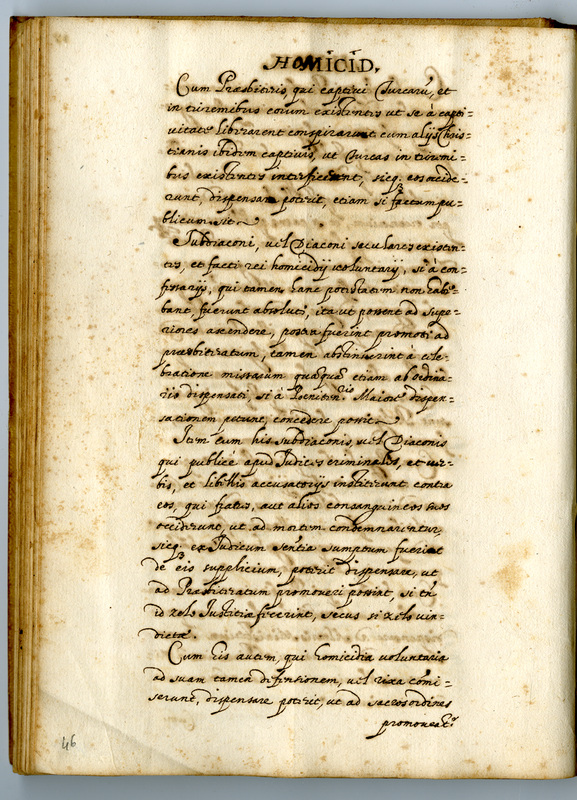 HOMICID.
Cum Præsbiteris, qui captivi Turcarũ, et
in triremibus eorum existentes ut se à capti=
vitate liberarent conspirarunt cum alijs Chris=
tianis ibidem captivis, ut Turcas in triremi=
bus existentes interficerent, sicq. eos occide=
runt, dispensare poterit, etiam si factum pu=
blicum sit
Subdiaconi, vel Diaconi seculares existen=
tes, et facti rei homicidij voluntarij, si à con=
fessarijs, qui tamen hanc potestatem non habe=
bant, fuerunt absoluti, ita ut possent ad supe=
riores ascendere, postea fuerint promoti ad
præsbiteratum, tamen abstinuerint à cele=
bratione missarum quãquã etiam ab ordina=
rijs dispensati, si à Pœniten.rio Maiore dispen=
sationem petunt, concedere potest
Item cum his subdiaconis, vel Diaconis
qui publicè apud Iudices criminales, et ver=
bis, et libellis accusatorijs institerunt contra
eos, qui fratres, aut alios consanguineos suos
occiderunt, ut ad mortem condemnarentur,
sicq. ex Iudicum sentia sumptum fuerit
de eis supplicium, poterit dispensare, ut
ad Præsbiteratum promoveri possint, si tñ
id zelo Iustitiæ fecerint, secus si zelo vin=
dictæ.
Cum eis autem, qui homicidia voluntaria
ad suam tamen defensionem, vel rixa comi=
serunt, dispensare poterit, ut ad sacros ordines
promoveãt.r
46